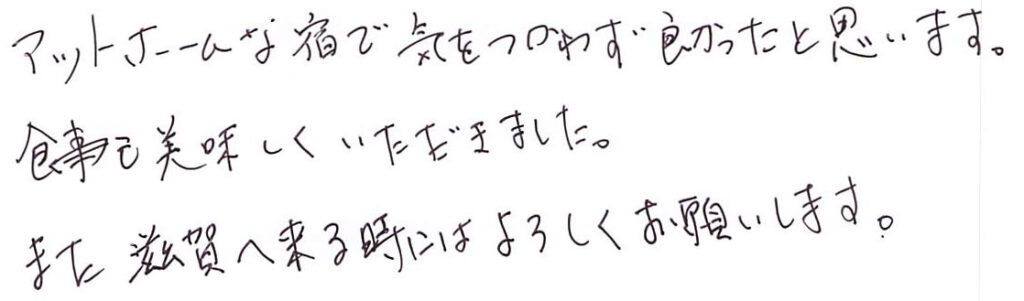 アットホームな宿で気をつかわず良かったと思います。
食事も美味しくいただきました。
また滋賀へ来る時にはよろしくお願いします。